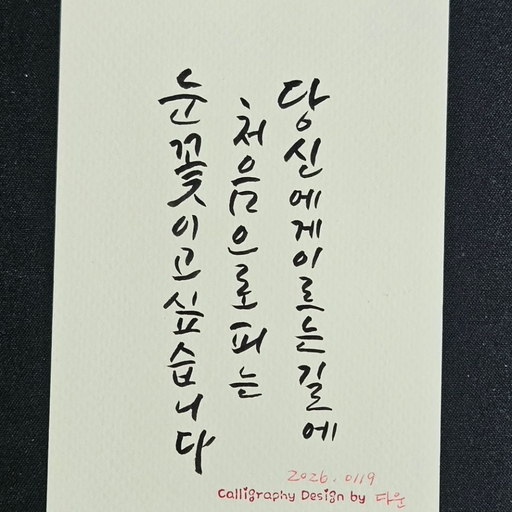 당신에게 이르는 길에
처음으로 피는
눈꽃이고 싶습니다
2026. 0119
Calligraphy Design by 다운